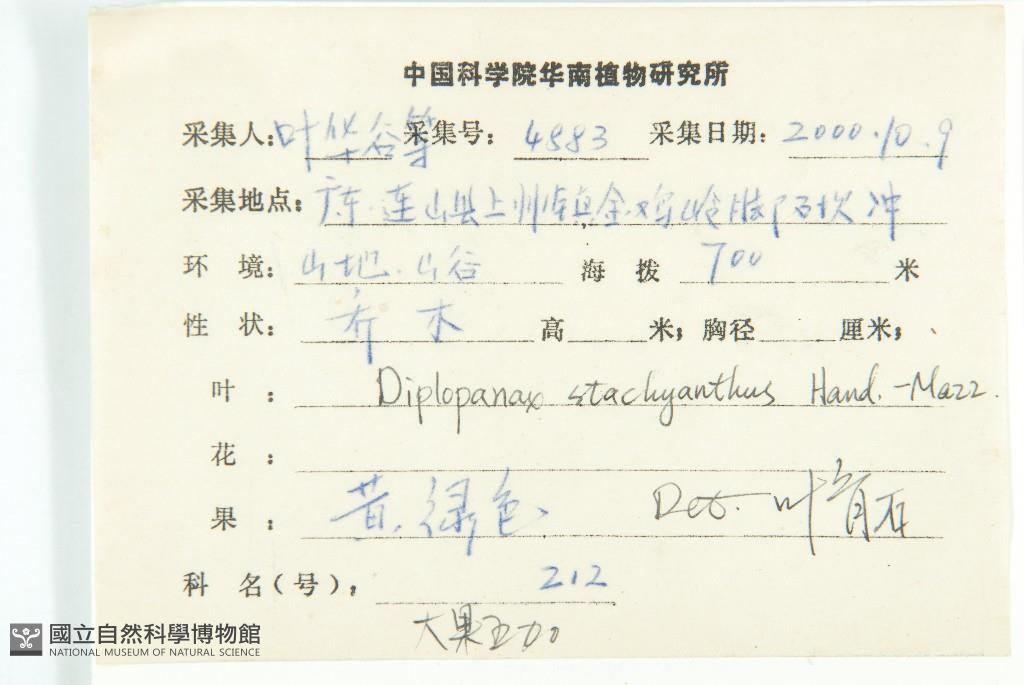 中国科学院华南植物研究所
采集人:叶华谷等 采集号: 4883 采集日期: 2000.10.9
采集地点: 广东.连山县上帅镇金鸡岭脚石坎冲
环 境: 山地.山谷 海 拨 700 米
性 状: 乔木 高 米; 胸径 厘米;
叶 : Diplopanax stachyanthus Hand.-Mazz.
花 :
果 : 黄绿色 Det. 叶育石
科 名(号), 212
大果五加
國立自然科學博物館
NATIONAL MUSEUM OF NATURAL SCIENCE